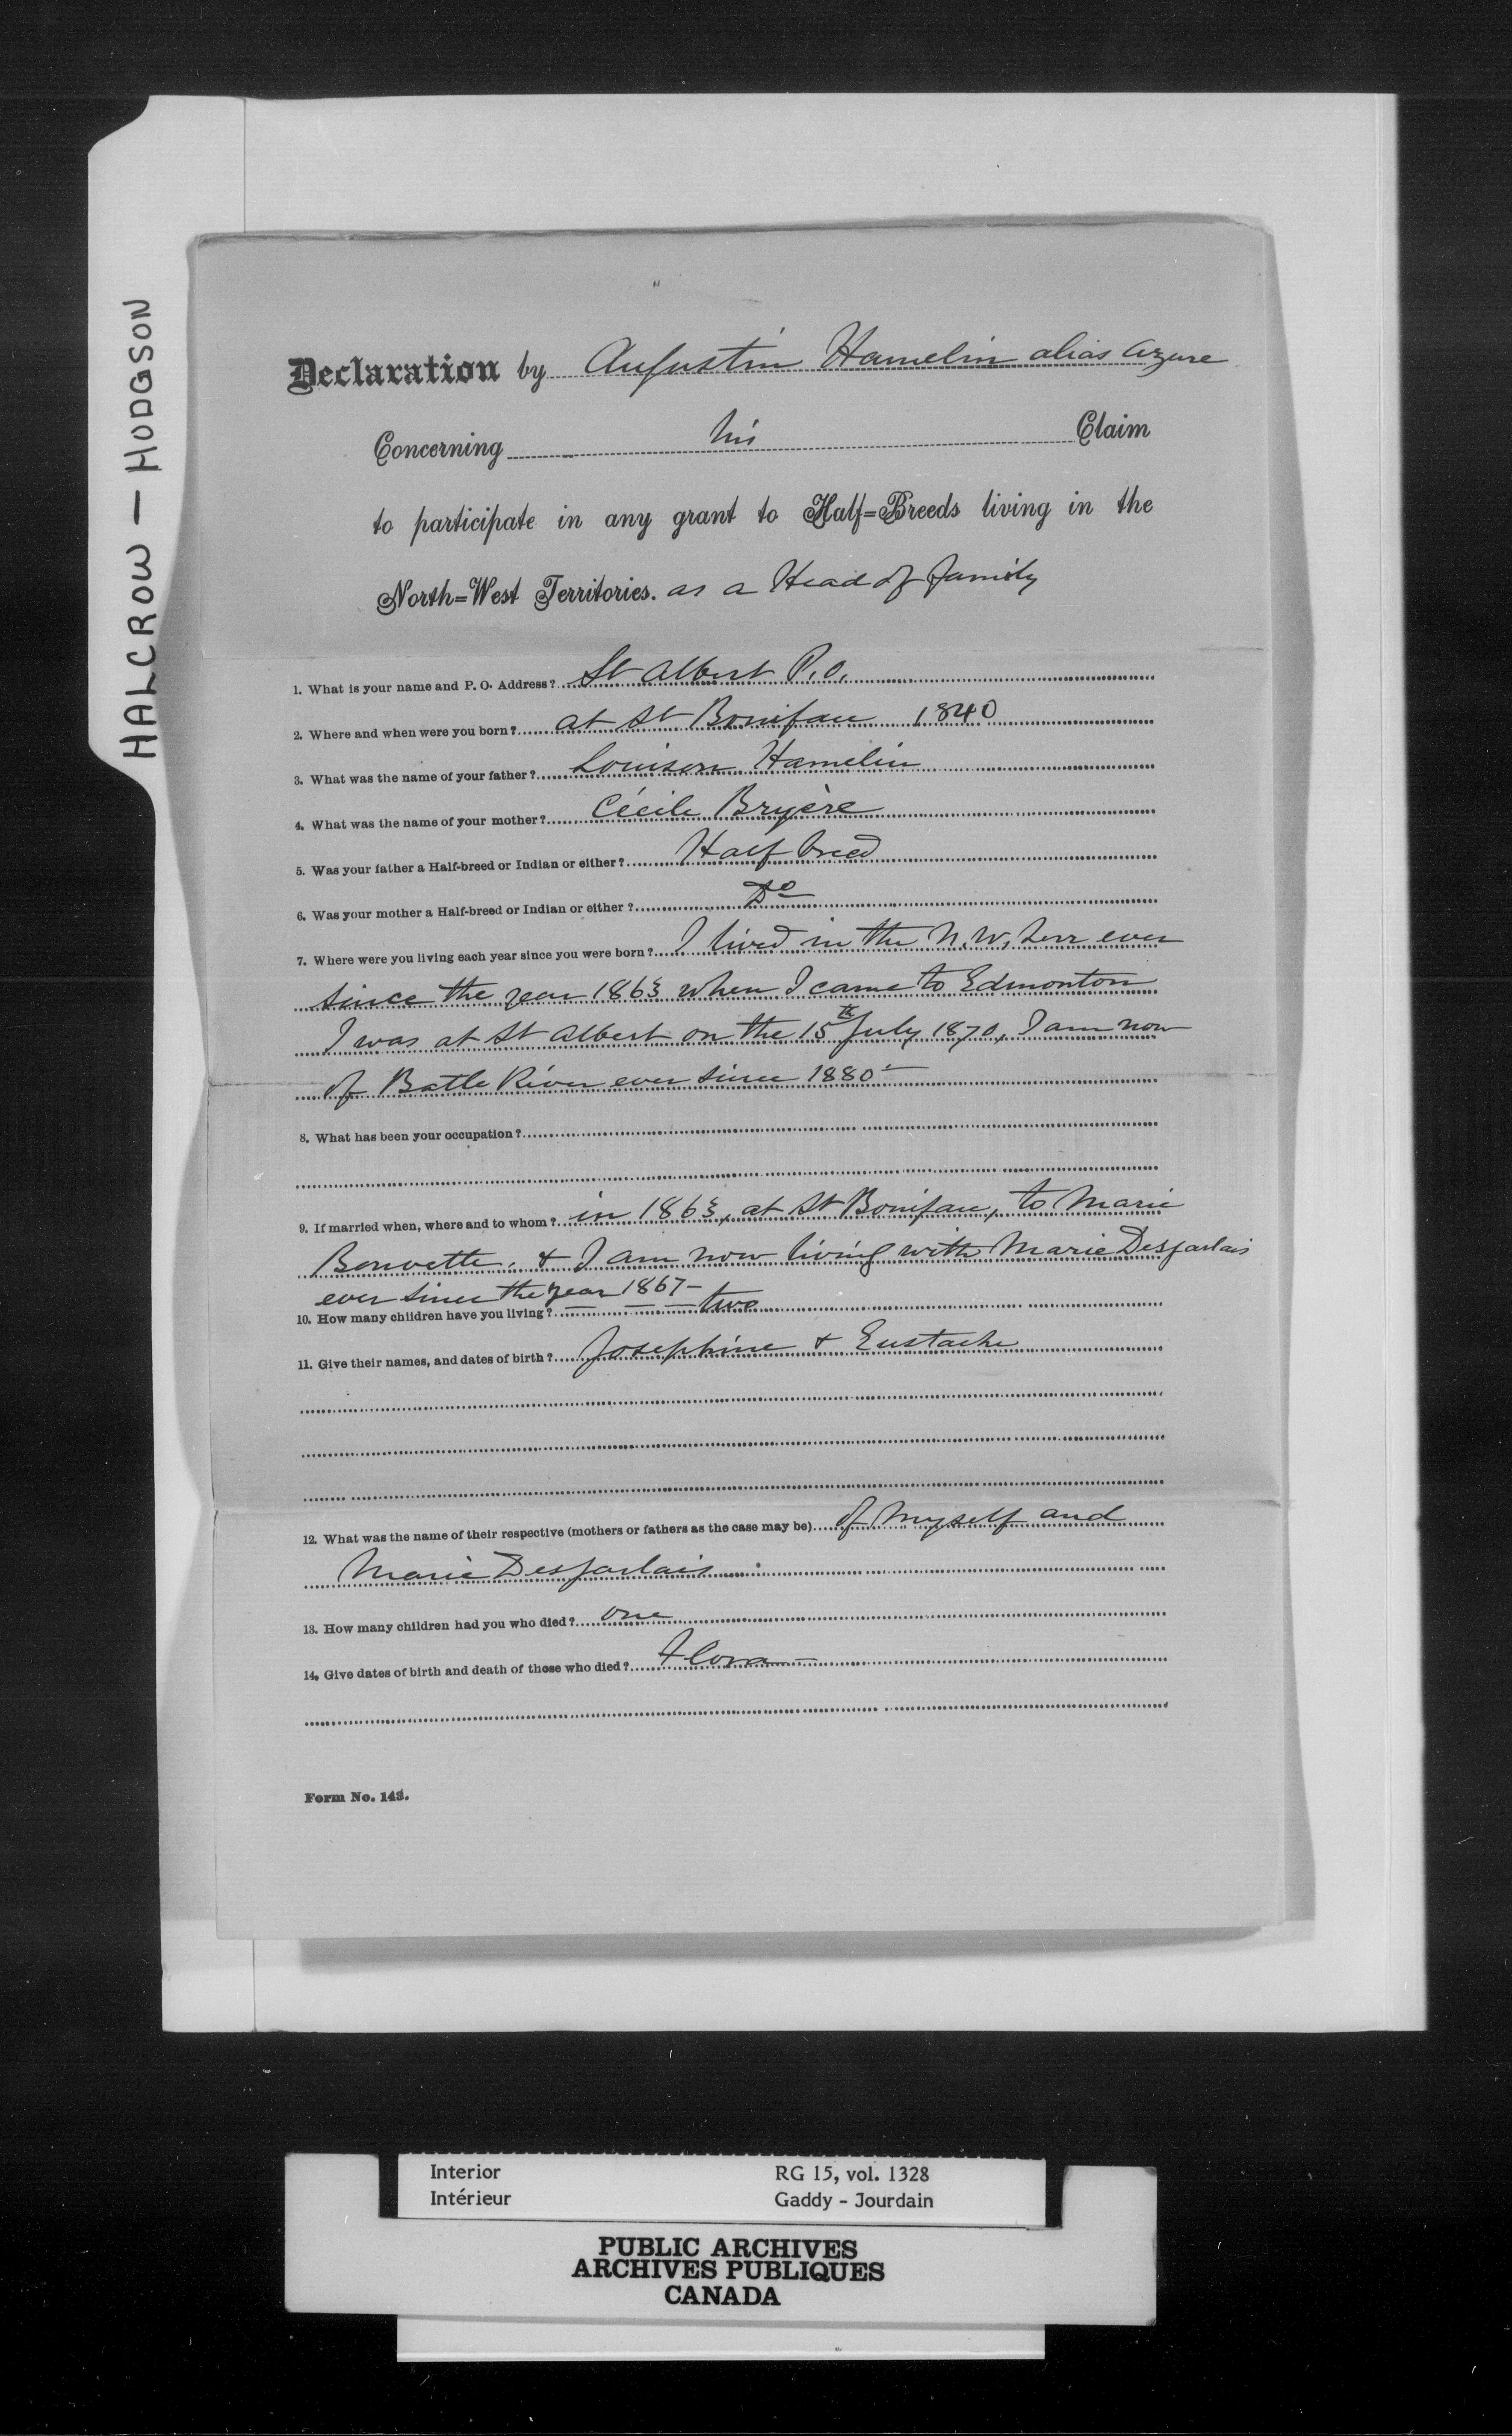 HALCROW — HODGSON
Declaration by Augustin Hamelin alias Azure
Concerning his Claim
to participate in any grant to Half=Breeds living in the
North=West Territories. as a Head of family
1. What is your name and P. O. Address? St Albert P.O.
2. Where and when were you born? at St Boniface 1840
3. What was the name of your father? Louison Hamelin
4. What was the name of your mother? Cécile Bryère
5. Was your father a Half-breed or Indian or either? Half breed
6. Was your mother a Half-breed or Indian or either? Do
7. Where were you living each year since you were born? I lived in the N.W. Terr ever
since the year 1863 when I came to Edmonton
I was at St Albert on the 15th July 1870, I am now
of Batle River ever since 1880 -
8. What has been your occupation?
9. If married when, where and to whom? in 1863, at St Boniface, to Marie
Bouvette, & I am now living with Marie Desjarlais
ever since the year 1867 -
10. How many children have you living? — — — two
11. Give their names, and dates of birth? Josephine & Eustache
12. What was the name of their respective (mothers or fathers as the case may be) of Myself and
Marie Desjarlais
13. How many children had you who died? One
14. Give dates of birth and death of those who died? Flora —
Form No. 143.
Interior RG 15, vol. 1328
Intérieur Gaddy - Jourdain
PUBLIC ARCHIVES
ARCHIVES PUBLIQUES
CANADA